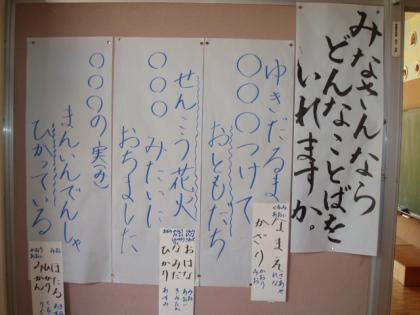 みなさんなら
どんなことばを
いれますか。
ゆきだるま
○○○つけて
おともだち
なまえ
かざり
せんこう花火
○○○みたいに
おちました
おはな
なみだ
ひかり
○○○の実(み)
まんいんでんしゃ
ひかっている
ほたる
ひかり
みかん